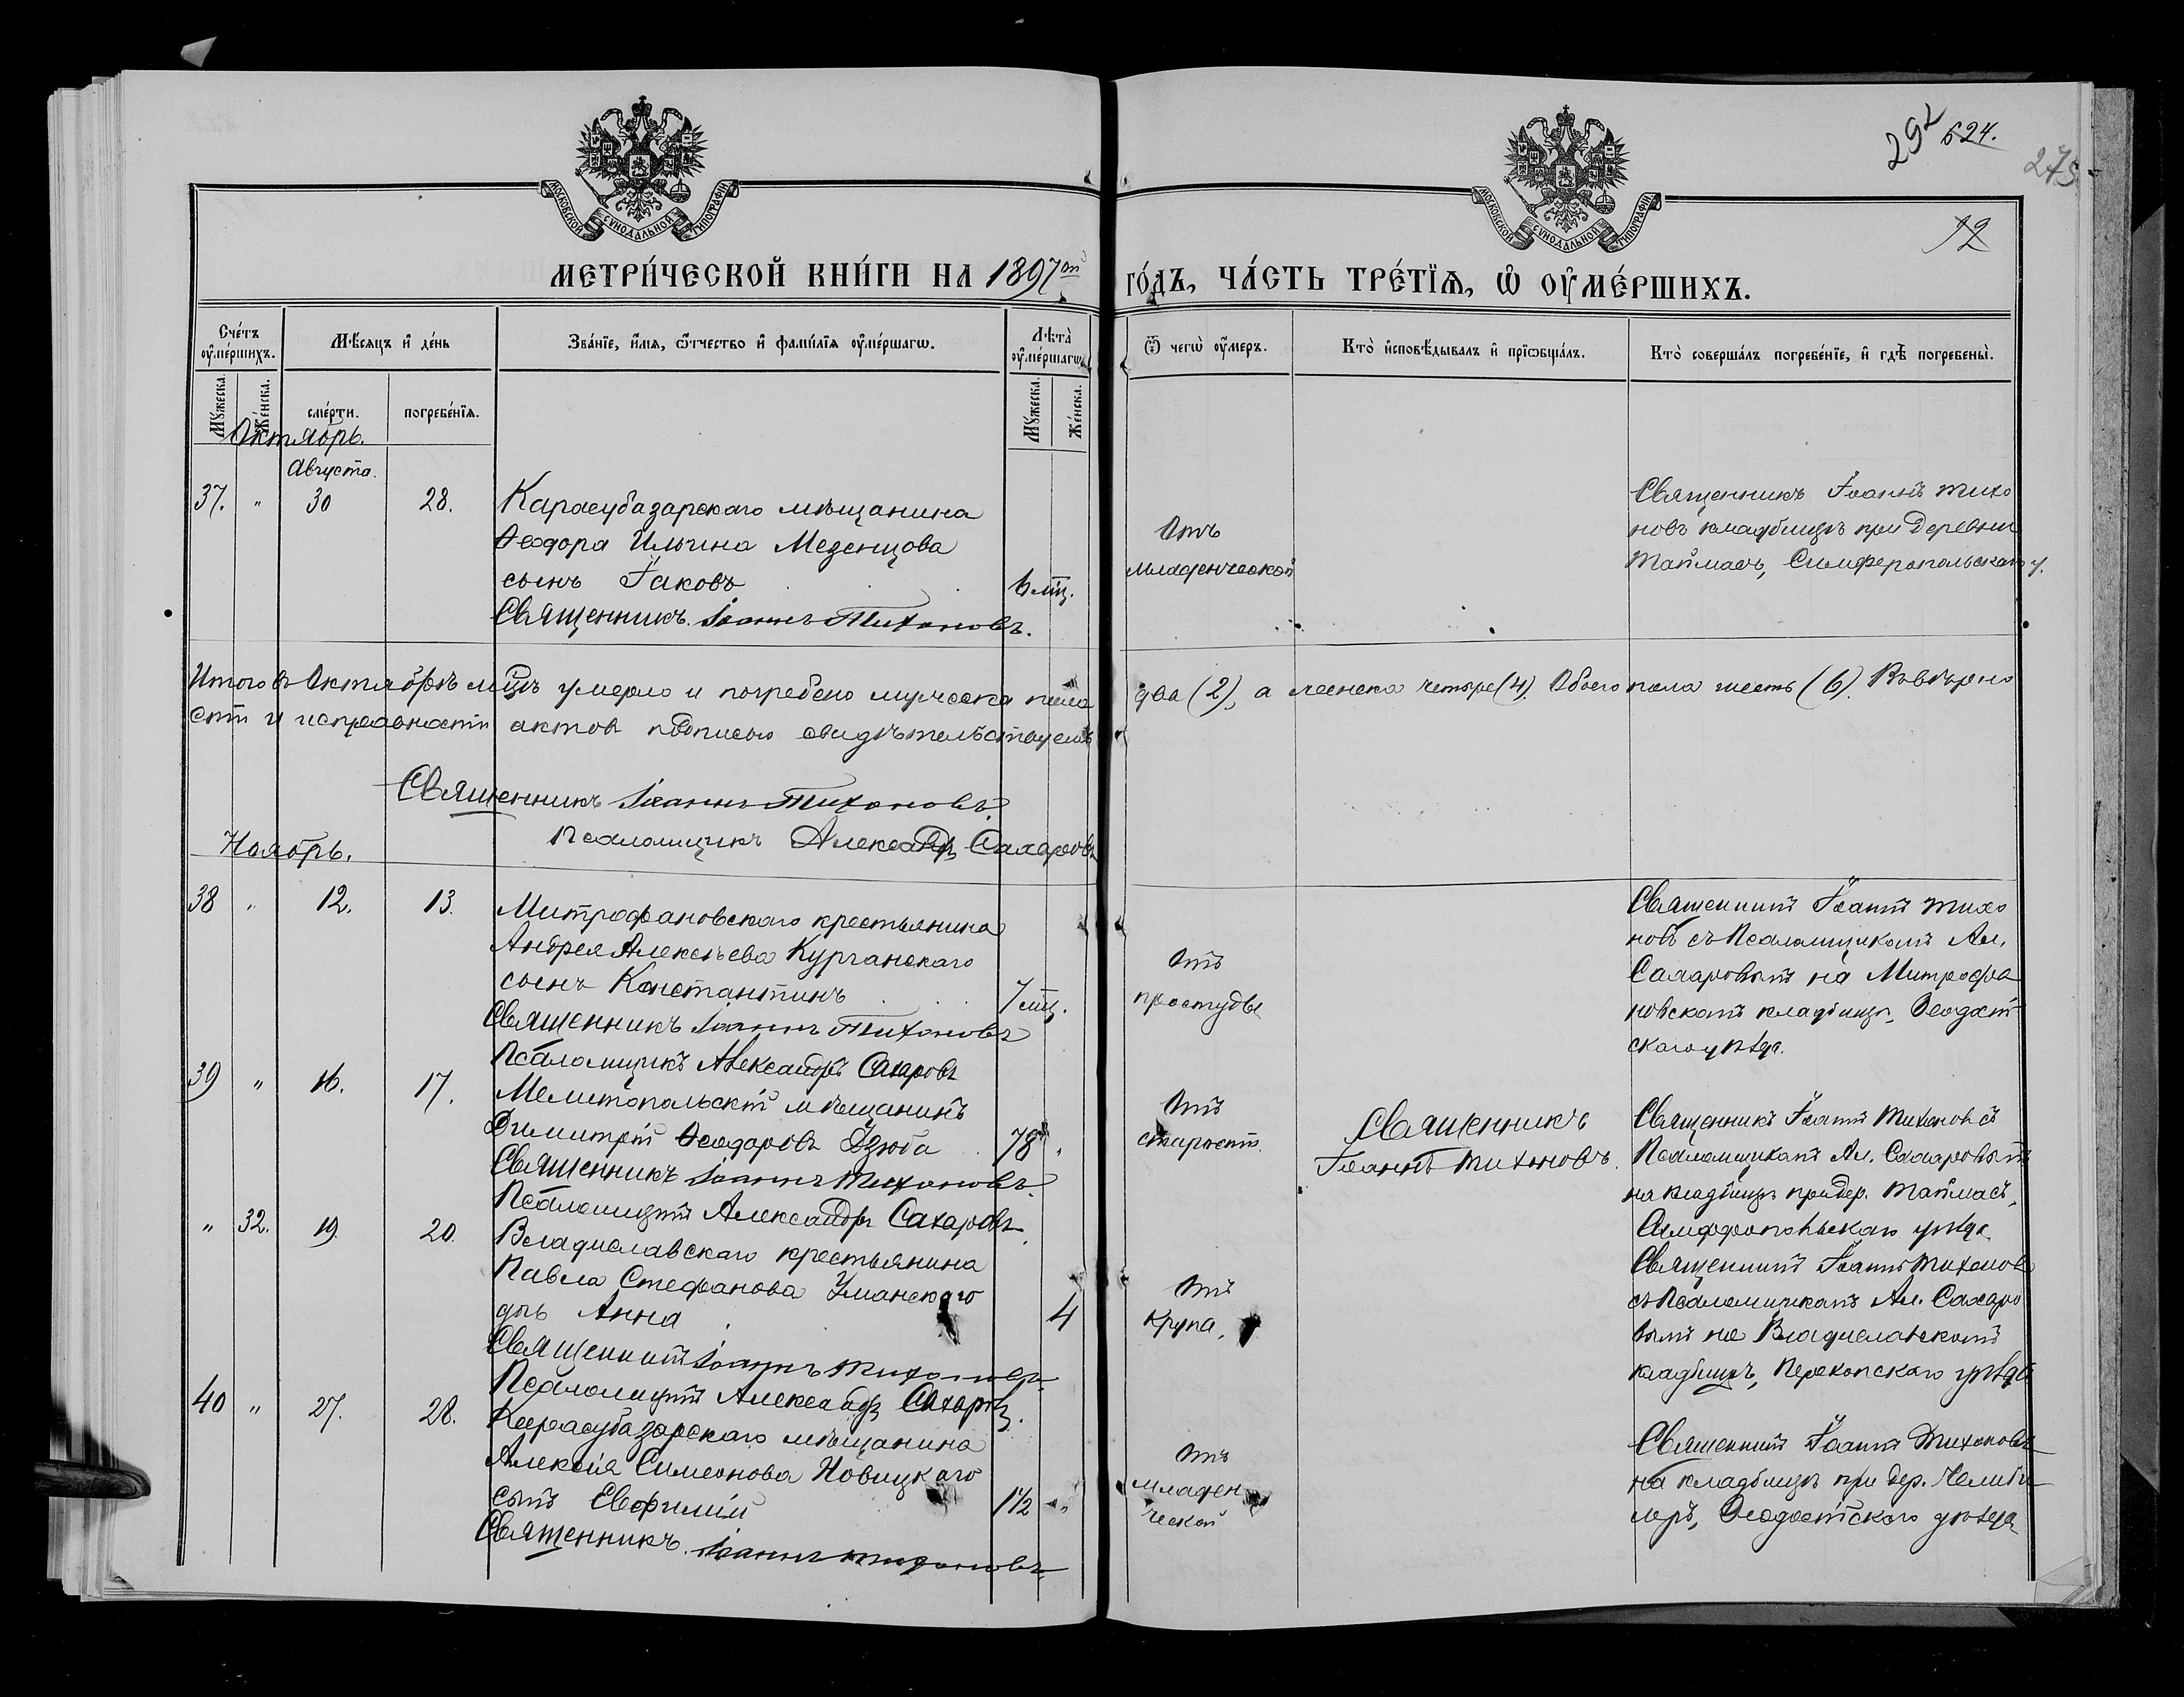 292 624.
275
12
МОСКОВСКОЙ СѴНОДАЛЬНОЙ ТИПОГРАФІИ
МОСКОВСКОЙ СѴНОДАЛЬНОЙ ТИПОГРАФІИ
МЕТРИ́ЧЕСКОЙ КНИ́ГИ НА 1897ой го́дъ, ЧА́СТЬ ТРЕ́ТЇѦ, Ѡ ОУМЕ́РШИХЪ.
Сче́тъ оумершихъ.
Мѣсяцъ и де́нь
Зва́нїе, и́мѧ, ѻ҆тчество и фами́лїѧ оуме́ршагѡ.
Лѣта̀ оуме́ршагѡ
Ѿ чегѡ̀ оумеръ.
Кто̀ исповѣдывалъ и прїѡбща́лъ.
Кто̀ соверша́лъ погребе́нїе, и гдѣ погребены̀.
Мꙋжеска.
Же́нска.
сме́рти.
погребе́нїѧ.
Мꙋжеска.
Же́нска.
Октябрь.
Августа.
37. " 30 28.
Карасубазарскаго мѣщанина
Ѳеодора Ильина Мезенцова
сынъ Іаковъ 6 мц.
Священникъ Іоаннъ Тихоновъ.
Отъ
младенческой
Священникъ Іоаннъ Тихо
новъ кладбищѣ при деревни
Таймасъ, Симферопольскаго у.
Итого въ Октябрѣ мцѣ умерло и погребено мужеска пола два (2), а женска четыре (4). Обоего пола шесть (6). Въ вѣрно
сти и исправности актов подписью свидѣтельствуемъ
Священникъ Іоаннъ Тихоновъ.
Псаломщикъ Александръ Сахаровъ
Ноябрь.
38 " 12. 13.
Митрофановскаго крестьянина
Андрея Алексѣева Курганскаго
сынъ Константинъ 7 мц.
Священникъ Іоаннъ Тихоновъ
Псаломщикъ Александръ Сахаровъ
Отъ
простуды
Священникъ Іоаннъ Тихо
новъ съ Псаломщикомъ Ал.
Сахаровымъ на Митрофа
новскомъ кладбищѣ, Ѳеодосій
скаго уѣзда.
39 " 16. 17.
Мелитопольскій мѣщанинъ
Димитрій Ѳеодоровъ Дзюба 78 "
Священникъ Іоаннъ Тихоновъ.
Псаломщикъ Александръ Сахаровъ.
Отъ
старости.
Священникъ
Іоаннъ Тихоновъ.
Священникъ Іоаннъ Тихоновъ съ
Псаломщикомъ Ал. Сахаровымъ
на кладбищѣ при дер. Таймасъ,
Симферопольскаго уѣзда.
" 32. 19. 20.
Владиславскаго крестьянина
Павла Стефанова Уманскаго
дчь Анна 4
Священникъ Іоаннъ Тихоновъ.
Псаломщикъ Александръ Сахаровъ.
Отъ
крупа.
Священникъ Іоаннъ Тихоновъ
съ Псаломщикомъ Ал. Сахаро
вымъ на Владиславскомъ
кладбищѣ, Перекопскаго уѣзда
40 " 27. 28.
Карасубазарскаго мѣщанина
Алексія Симеонова Новицкаго
сынъ Евфимій 1½ "
Священникъ Іоаннъ Тихоновъ.
Отъ
младен
ческой
Священникъ Іоаннъ Тихоновъ
на кладбищѣ при дер. Челеби
леръ, Ѳеодосійскаго уѣзда